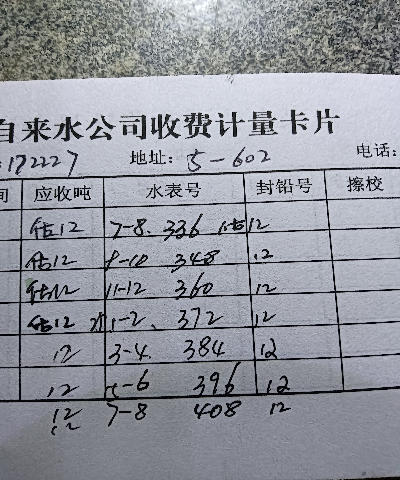 自来水公司收费计量卡片
:172227 地址: 5-602 电话:
间 应收吨 水表号 封铅号 擦校
估12 7-8. 336 12
估12 9-10 348 12
估12 11-12 360 12
估12 1-2. 372 12
12 3-4. 384 12
12 5-6 396 12
12 7-8 408 12
12